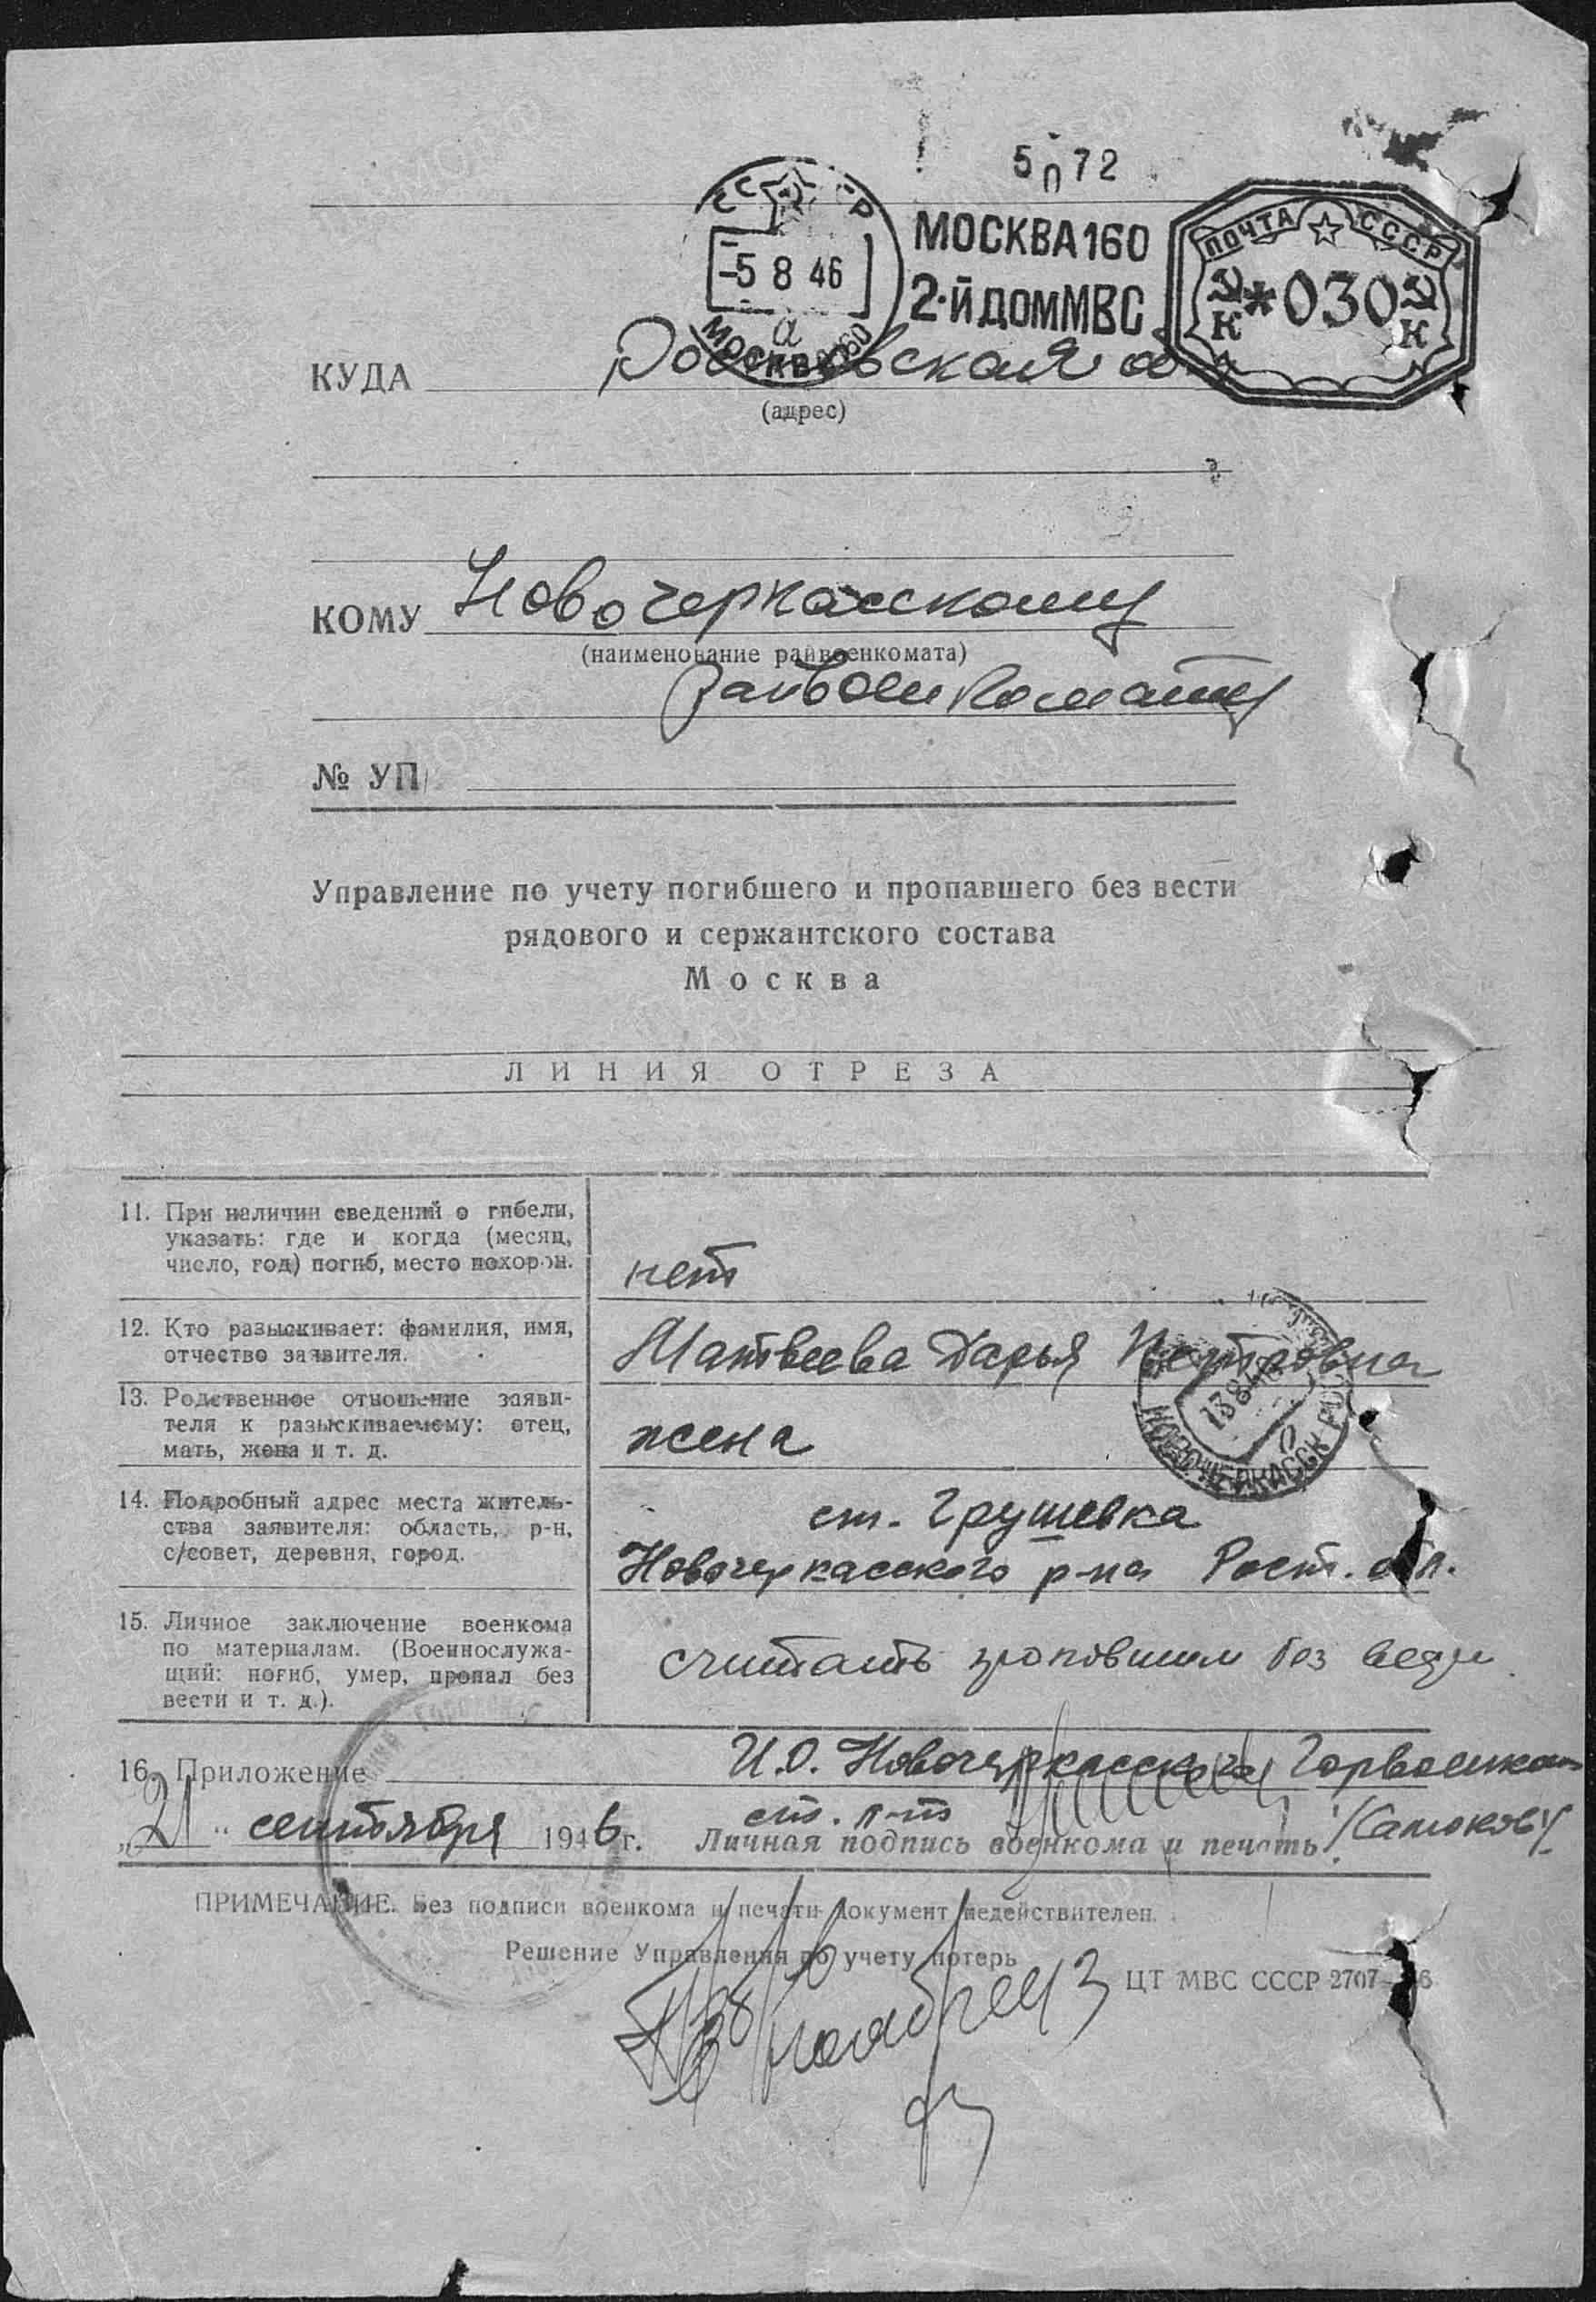 5 П 72
СССР
МОСКВА 160
ПОЧТА СССР
-5 8 46
2-Й ДОМ МВС
К * 030 К
а
МОСКВА 160
КУДА Ростовская обл
(адрес)
КОМУ Новочеркасскому
(наименование райвоенкомата)
райвоенкомату
№ УП
Управление по учету погибшего и пропавшего без вести
рядового и сержантского состава
Москва
ЛИНИЯ ОТРЕЗА
11. При наличии сведений о гибели,
указать: где и когда (месяц,
число, год) погиб, место похорон.
нет
12. Кто разыскивает: фамилия, имя,
отчество заявителя.
Матвеева Дарья Петровна
13. Родственное отношение заяви-
теля к разыскиваемому: отец,
мать, жена и т. д.
жена
13 8 46
НОВОЧЕРКАССК РОС
14. Подробный адрес места житель-
ства заявителя: область, р-н,
с/совет, деревня, город.
ст. Грушевка
Новочеркасского р-на Рост. обл.
15. Личное заключение военкома
по материалам. (Военнослужа-
щий: погиб, умер, пропал без
вести и т. д.).
считать пропавшим без вести
16. Приложение
И.О. Новочеркасского Горвоенком
ст. л-т
„21" сентября 1946 г. Личная подпись военкома и печать
ПРИМЕЧАНИЕ. Без подписи военкома и печати документ недействителен.
Решение Управления по учету потерь
ЦТ МВС СССР 2707